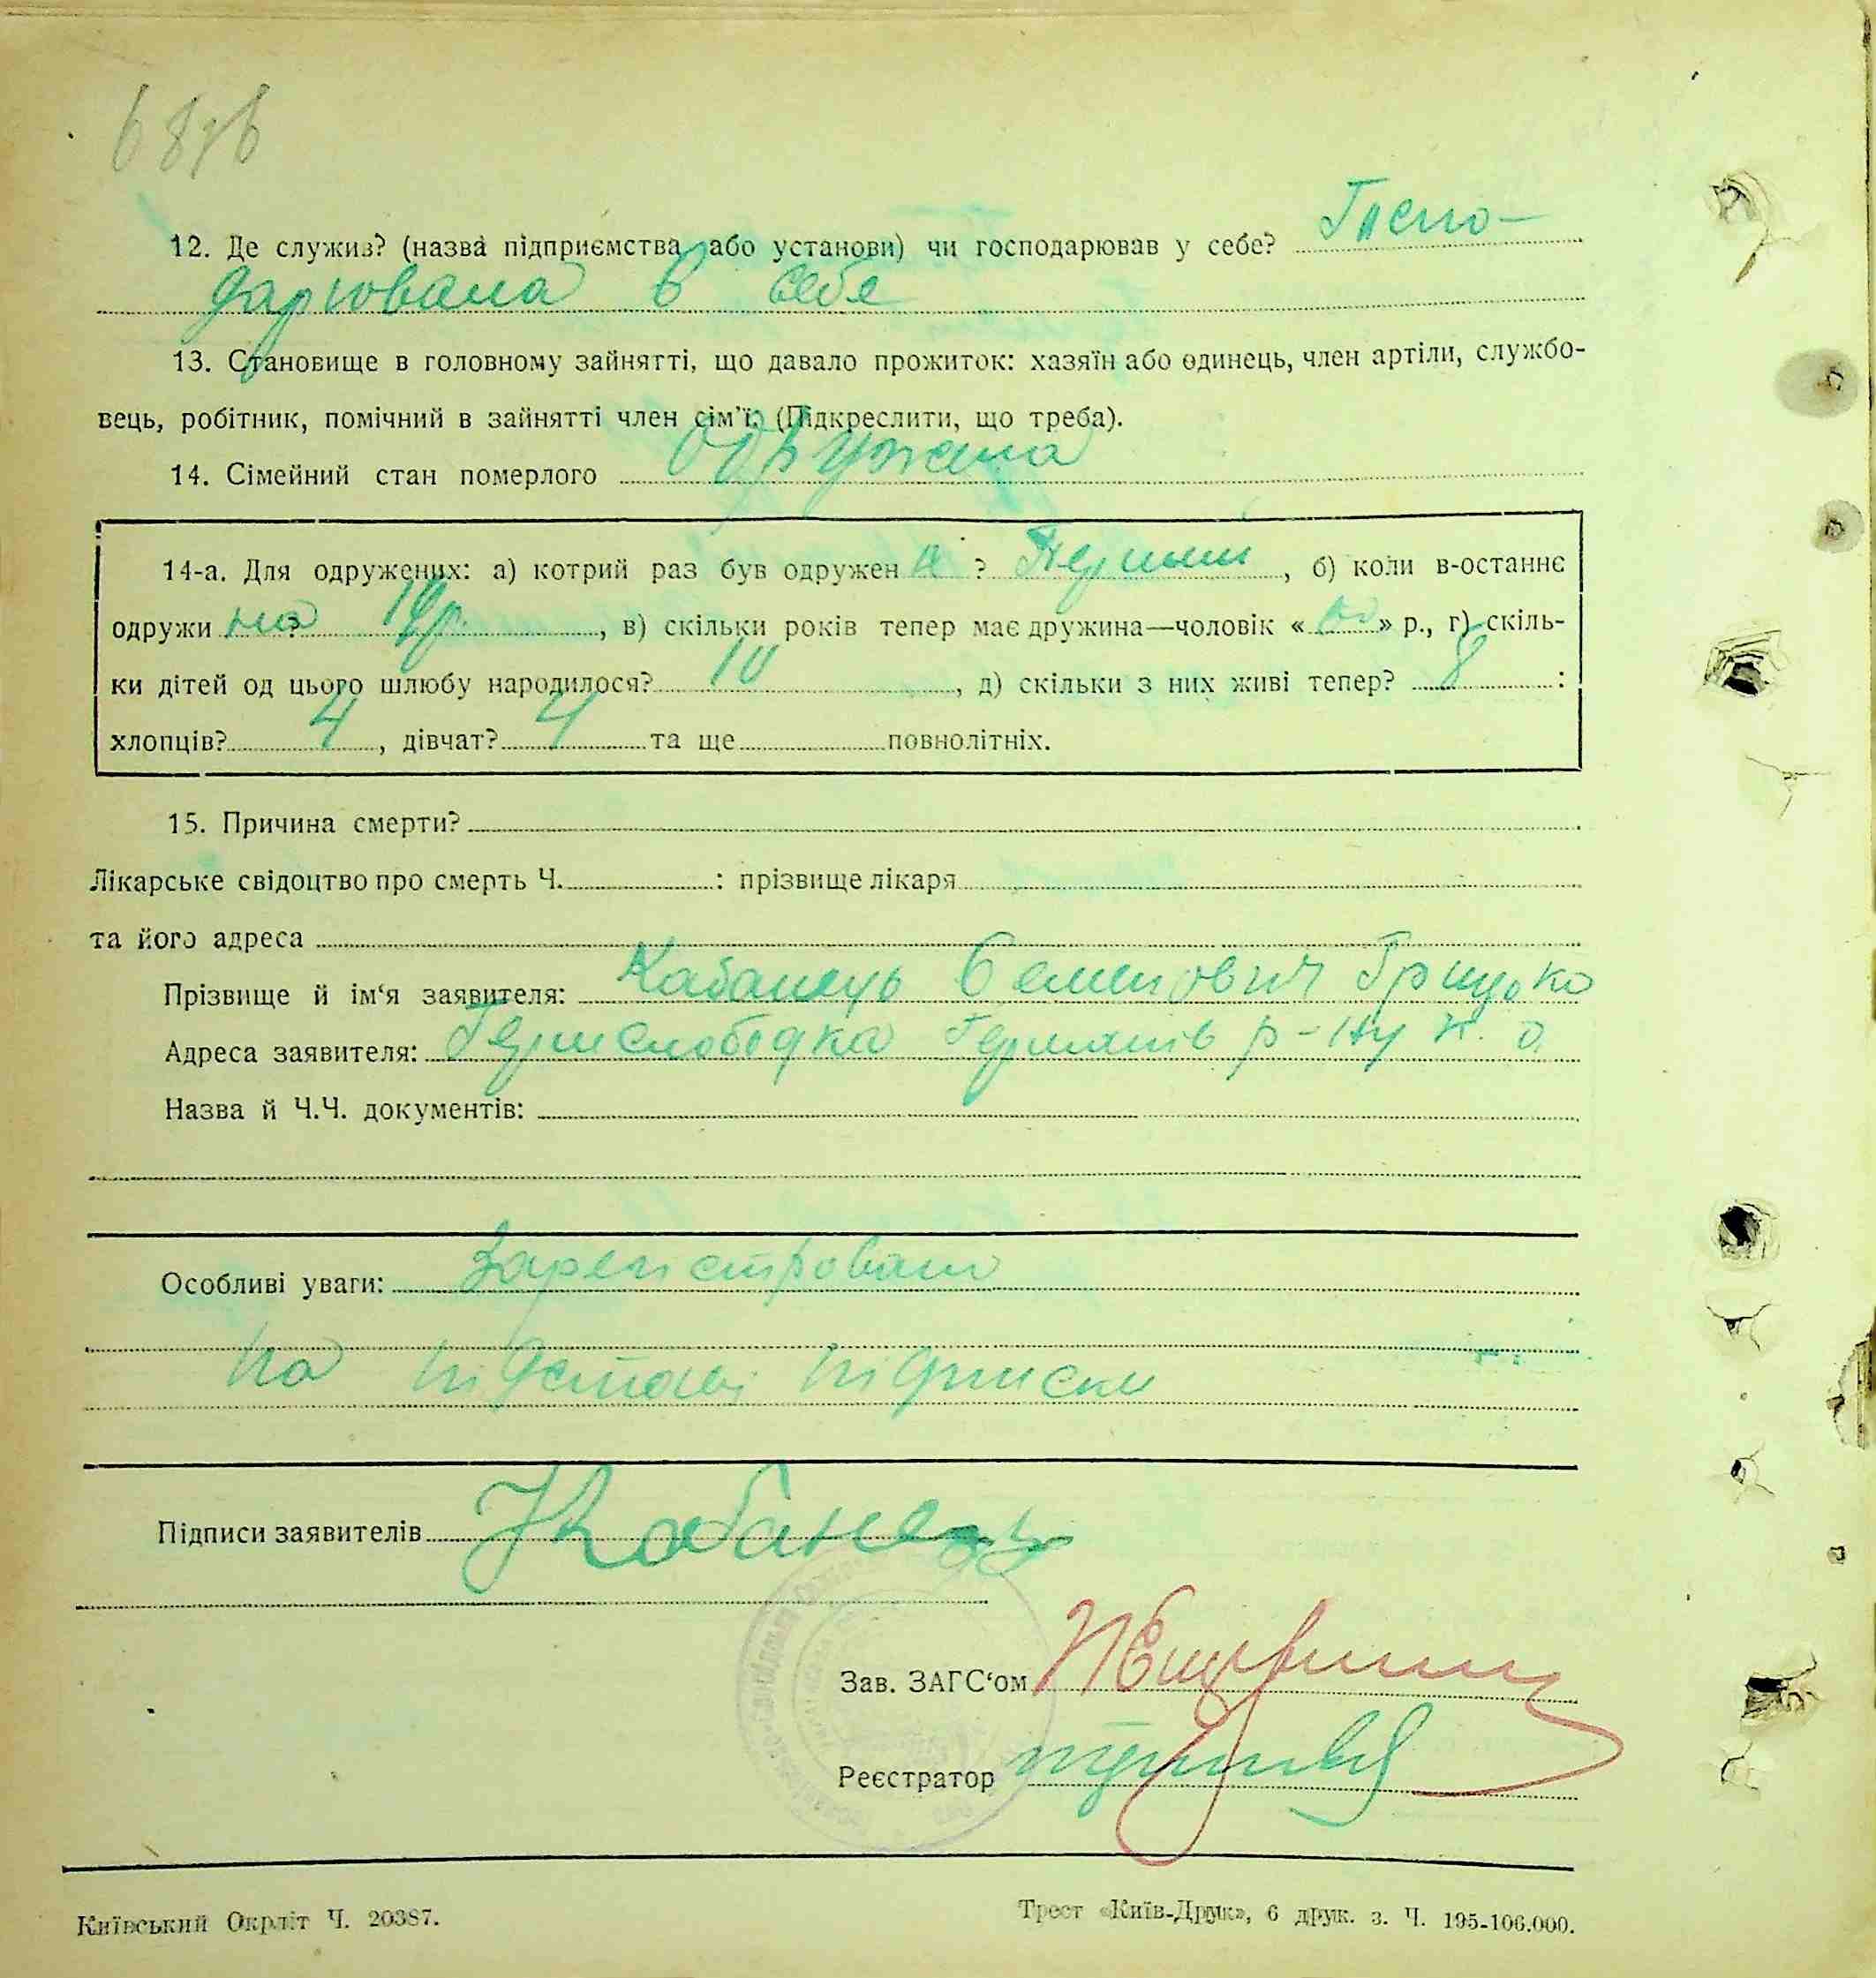 6876
12. Де служив? (назва підприємства або установи) чи господарював у себе? Госпо-
дарювала в себе
13. Становище в головному зайнятті, що давало прожиток: хазяїн або одинець, член артіли, службо-
вець, робітник, помічний в зайнятті член сім'ї; (Підкреслити, що треба).
14. Сімейний стан померлого одружена
14-а. Для одружених: а) котрий раз був одружен а ? Перший, б) коли в-останнє
одружи на? 19р., в) скільки років тепер має дружина—чоловік « » р., г) скіль-
ки дітей од цього шлюбу народилося? 10, д) скільки з них живі тепер? 8:
хлопців? 4, дівчат? 4 та ще повнолітніх.
15. Причина смерти?
Лікарське свідоцтво про смерть Ч. : прізвище лікаря
та його адреса
Прізвище й ім'я заявителя: Кабанець Семенович Грицько
Адреса заявителя: Гермслобідка р-ну К. О.
Назва й Ч.Ч. документів:
Особливі уваги: Зарегістровано
на підставі підписки
Підписи заявителів Кабанець
Зав. ЗАГС'ом
Реєстратор
Київський Окрліт Ч. 20387.
Трест «Київ-Друк», 6 друк. з. Ч. 195-106.000.